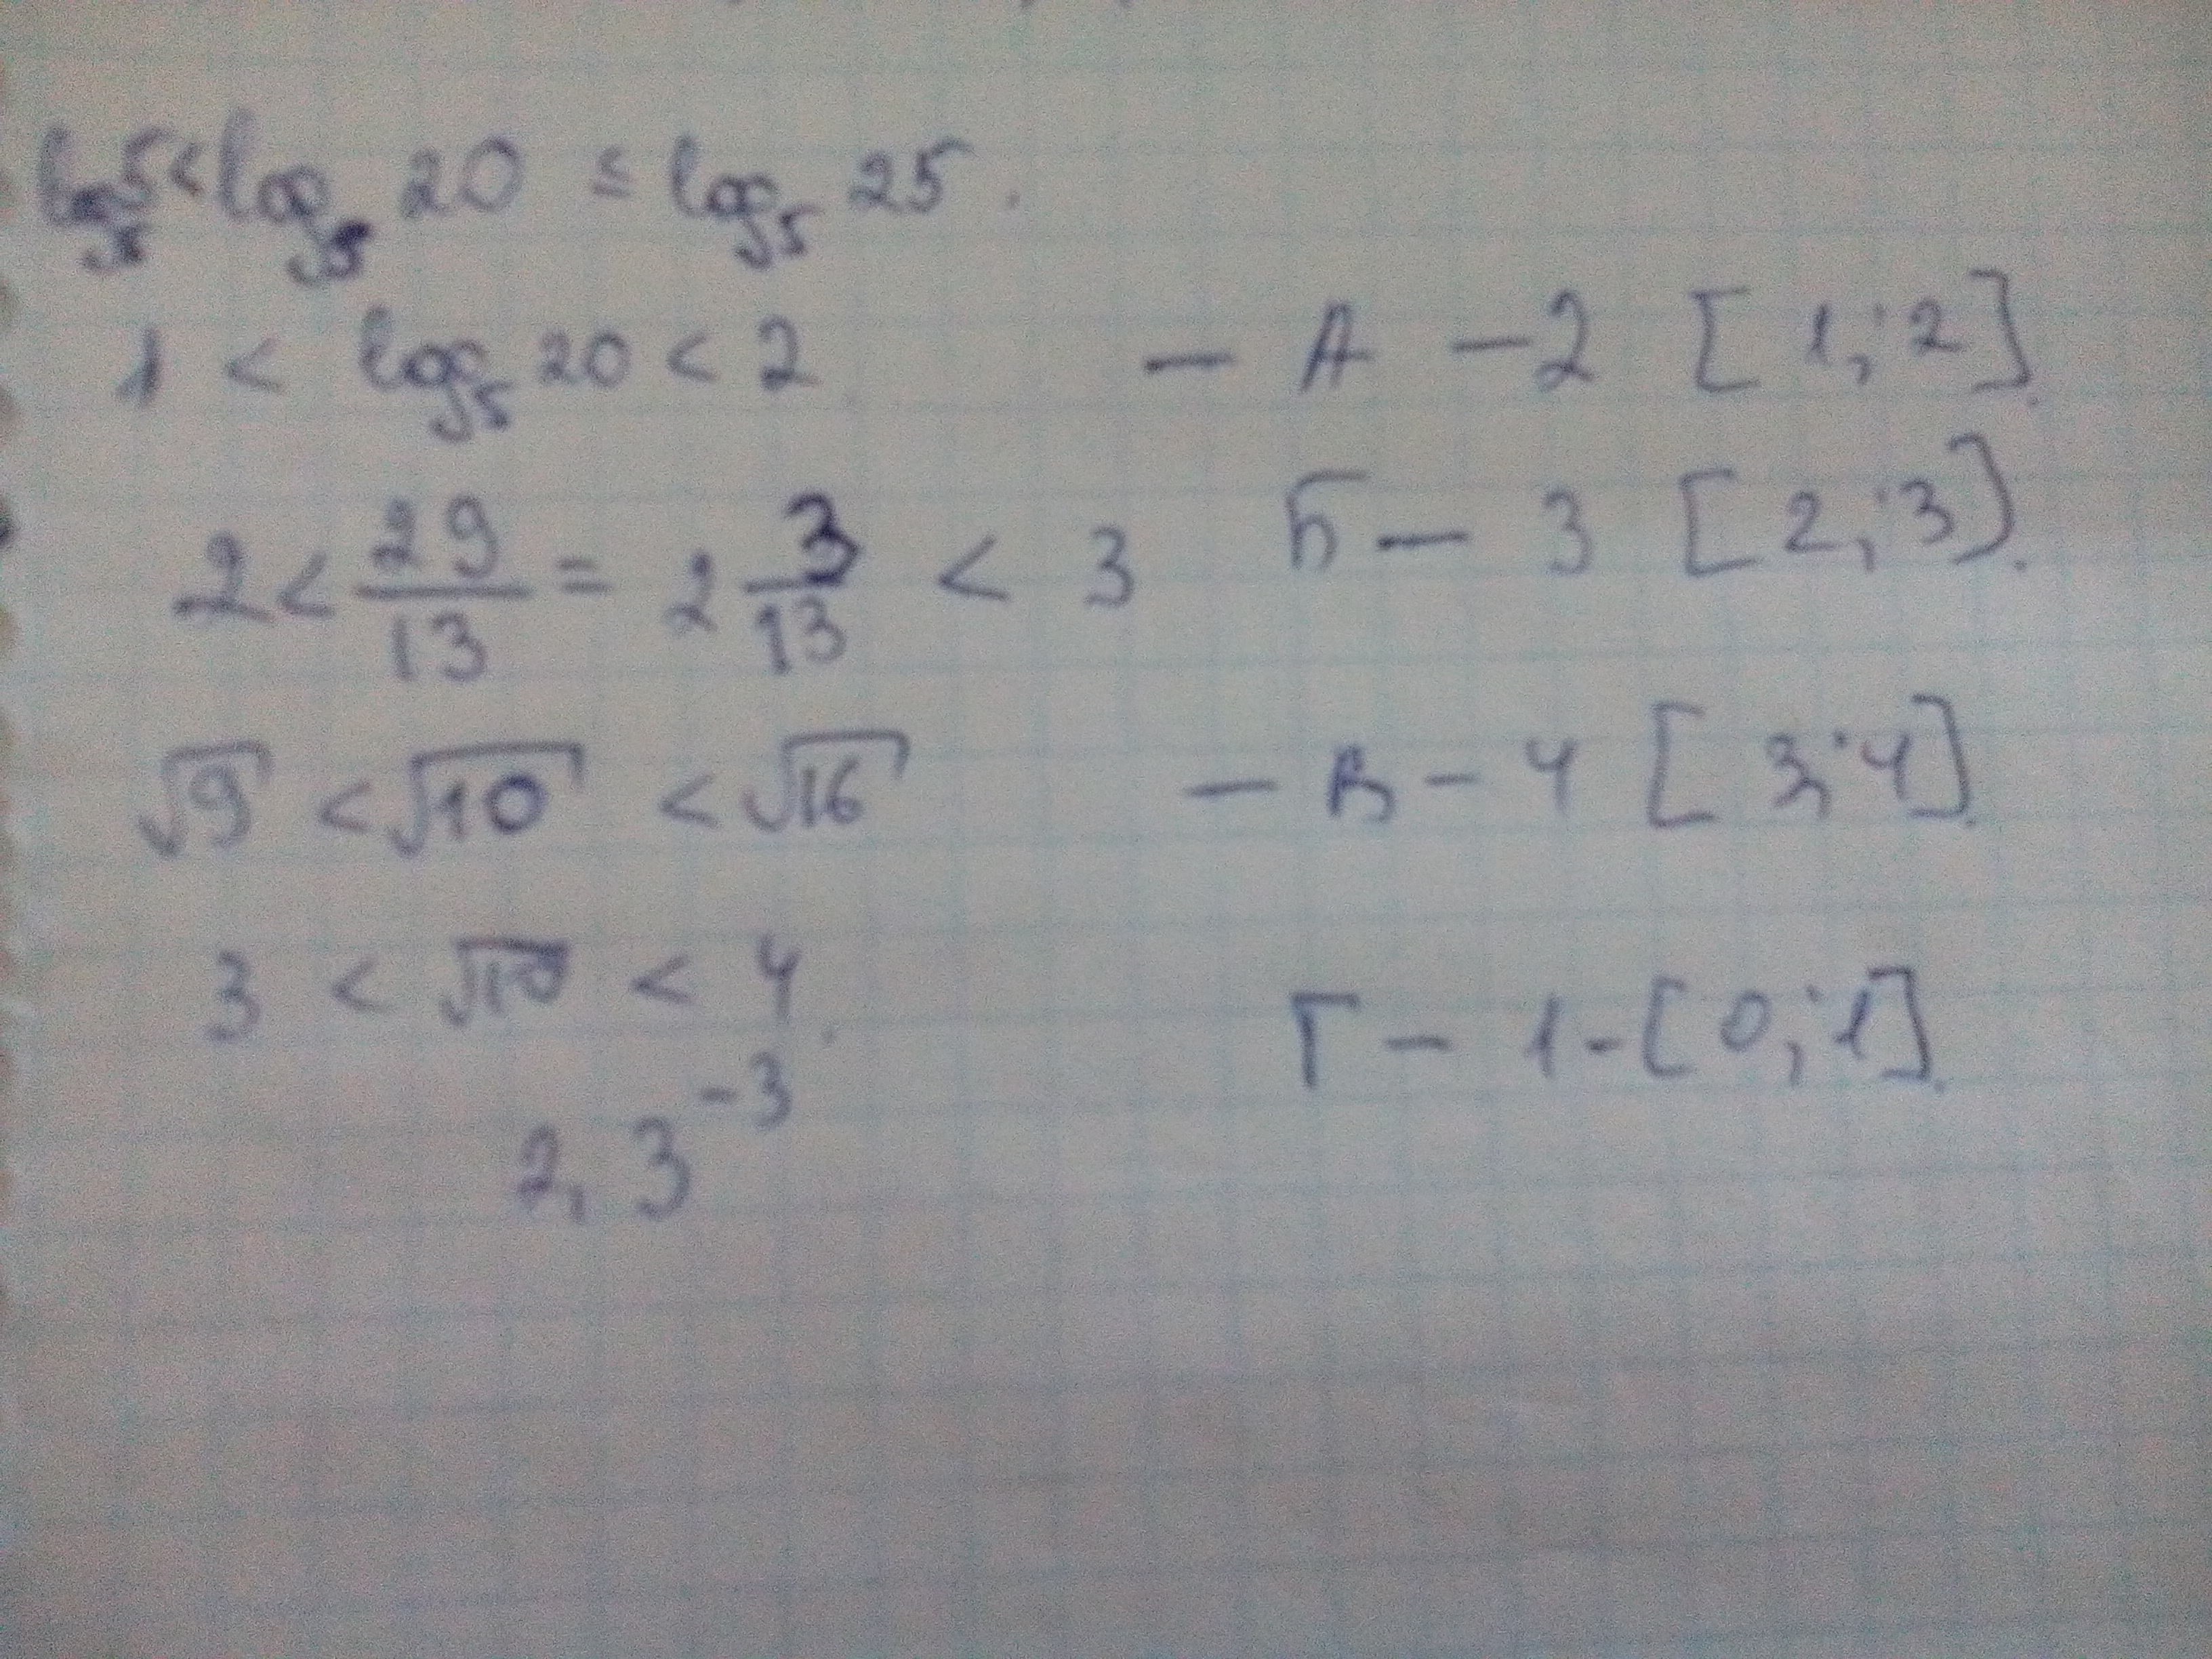 log₅5 < log₅ 20 ≤ log₅ 25.
1 < log₅ 20 < 2 — А — 2 [1; 2].
2 < 29/13 = 2 3/13 < 3 Б — 3 [2; 3].
√9 < √10 < √16 — В — 4 [3; 4].
3 < √10 < 4. Г — 1 - [0; 1].
2,3⁻³